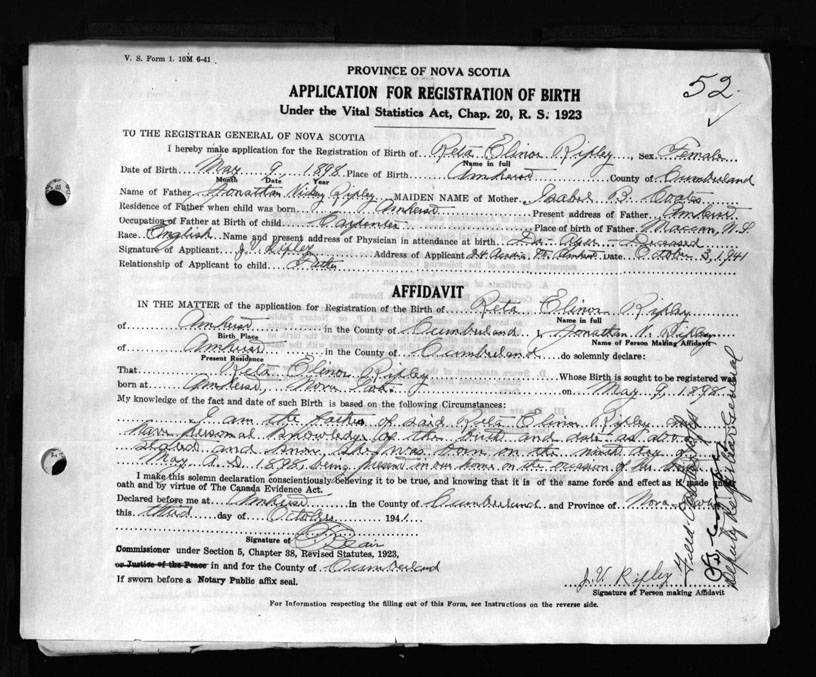 V. S. Form 1. 10M 6-41
52
PROVINCE OF NOVA SCOTIA
APPLICATION FOR REGISTRATION OF BIRTH
Under the Vital Statistics Act, Chap. 20, R. S. 1923
TO THE REGISTRAR GENERAL OF NOVA SCOTIA
I hereby make application for the Registration of Birth of Reta Elinor Ripley, Sex Female
Name in full
Date of Birth May 9, 1898 Place of Birth Amherst County of Cumberland
Month Date Year
Name of Father Jonathan Ripley MAIDEN NAME of Mother Isabel B. Coates
Residence of Father when child was born Amherst Present address of Father Amherst
Occupation of Father at Birth of child Carpenter Place of birth of Father Maccan, N.S.
Race English Name and present address of Physician in attendance at birth Dr. Deceased
Signature of Applicant J. V. Ripley Address of Applicant Amherst Date October 3, 1941
Relationship of Applicant to child Father
AFFIDAVIT
IN THE MATTER of the application for Registration of the Birth of Reta Elinor Ripley
Name in full
of Amherst in the County of Cumberland I, Jonathan V. Ripley
Birth Place Name of Person Making Affidavit
of Amherst in the County of Cumberland do solemnly declare:
Present Residence
That Reta Elinor Ripley Whose Birth is sought to be registered was
born at Amherst, Nova Scotia on May 9, 1898.
My knowledge of the fact and date of Birth is based on the following Circumstances:
I am the father of said Reta Elinor Ripley and
have personal knowledge of the birth and date as above
stated and know she was born on the ninth day of
May A.D. 1898, being present in our home on the occasion of her birth
I make this solemn declaration conscientiously believing it to be true, and knowing that it is of the same force and effect as if made under
oath and by virtue of The Canada Evidence Act.
Declared before me at Amherst in the County of Cumberland and Province of Nova Scotia
this third day of October 1941
Signature of Blair
Commissioner under Section 5, Chapter 38, Revised Statutes, 1923,
or Justice of the Peace in and for the County of Cumberland
If sworn before a Notary Public affix seal.
J. V. Ripley
Signature of Person making Affidavit
For Information respecting the filling out of this Form, see Instructions on the reverse side.
Filed
Deputy Registrar General